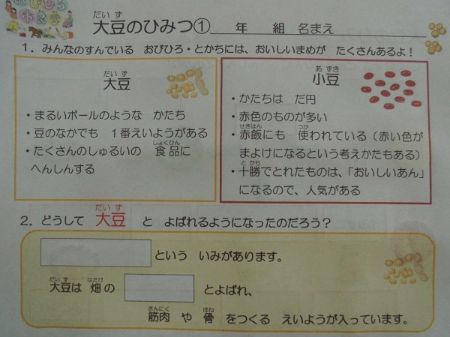 大豆のひみつ① 年 組 名まえ
1. みんなのすんでいる おびひろ・とかちには、おいしいまめが たくさんあるよ!
大豆
・まるいボールのような かたち
・豆のなかでも 1番えいようがある
・たくさんのしゅるいの 食品に
へんしんする
小豆
・かたちは だ円
・赤色のものが多い
・赤飯にも 使われている(赤い色が
まよけになるという考えかたもある)
・十勝でとれたものは、「おいしいあん」
になるので、人気がある
2. どうして 大豆 と よばれるようになったのだろう?
という いみがあります。
大豆は 畑の とよばれ、
筋肉 や 骨 をつくる えいようが入っています。